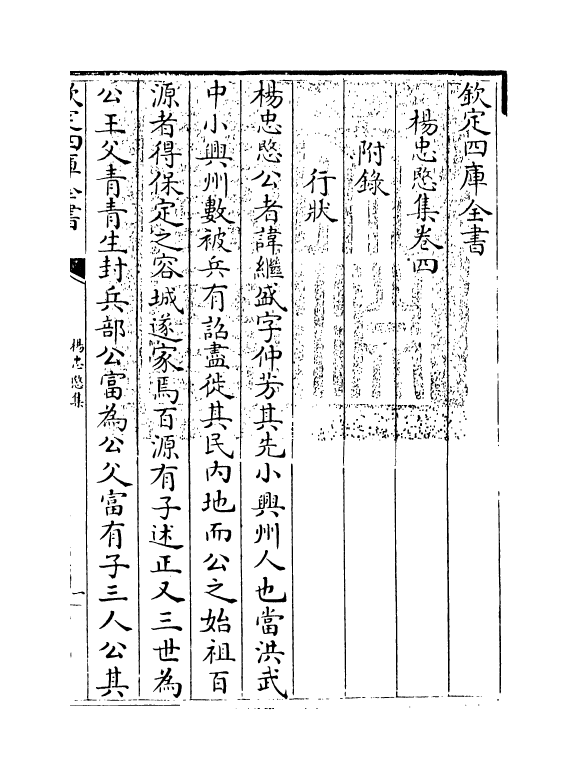 欽定四庫全書
楊忠愍集卷四
附錄
行狀
楊忠愍公者諱繼盛字仲芳其先小興州人也當洪武
中小興州數被兵有詔盡徙其民內地而公之始祖百
源者得保定之容城遂家焉百源有子述正又三世為
公王父青青生封兵部公富為公父富有子三人公其
欽定四庫全書
楊忠愍集
一